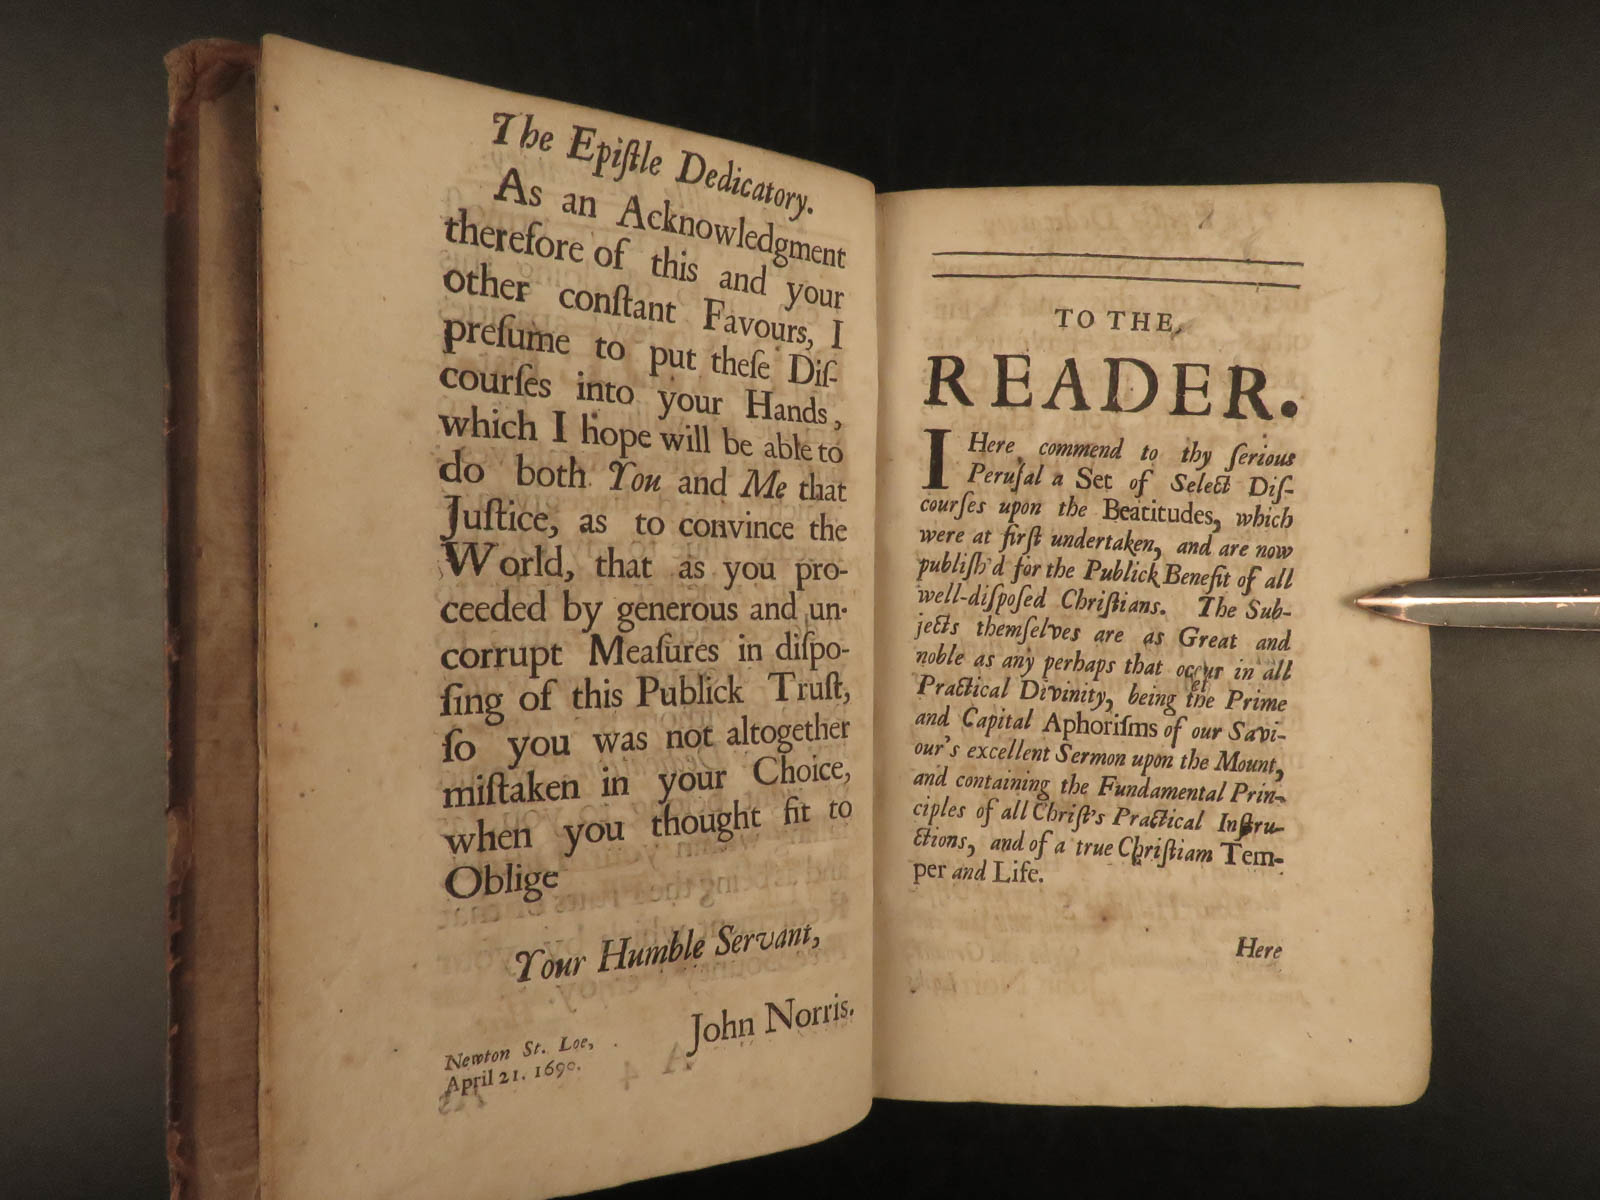 The Epiſtle Dedicatory.
As an Acknowledgment
therefore of this and your
other conſtant Favours, I
preſume to put theſe Diſ-
courſes into your Hands,
which I hope will be able to
do both You and Me that
Juſtice, as to convince the
World, that as you pro-
ceeded by generous and un-
corrupt Meaſures in diſpo-
ſing of this Publick Truſt,
ſo you was not altogether
miſtaken in your Choice,
when you thought fit to
Oblige
Your Humble Servant,
John Norris.
Newton St. Loe,
April 21. 1690.
TO THE
READER.
I Here commend to thy ſerious
Peruſal a Set of Select Diſ-
courſes upon the Beatitudes, which
were at firſt undertaken, and are now
publiſh'd for the Publick Benefit of all
well-diſpoſed Chriſtians. The Sub-
jects themſelves are as Great and
noble as any perhaps that occur in all
Practical Divinity, being the Prime
and Capital Aphoriſms of our Savi-
our's excellent Sermon upon the Mount,
and containing the Fundamental Prin-
ciples of all Chriſt's Practical Inſtru-
ctions, and of a true Chriſtiam Tem-
per and Life.
Here